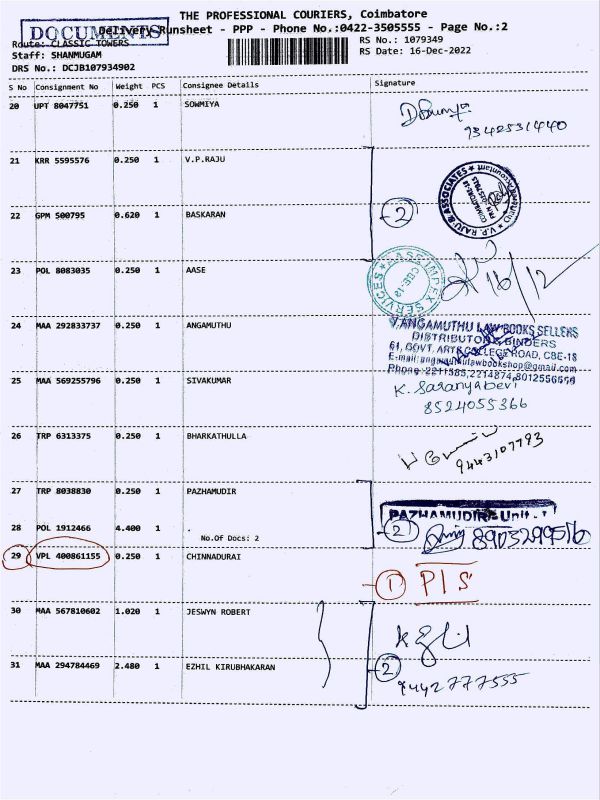 THE PROFESSIONAL COURIERS, Coimbatore
DOCUMENTS
Delivery Runsheet - PPP - Phone No.:0422-3505555 - Page No.:2
Route: CLASSIC TOWERS
RS No.: 1079349
Staff: SHANMUGAM
RS Date: 16-Dec-2022
DRS No.: DCJB107934902
S No Consignment No Weight PCS Consignee Details Signature
20 UPT 8047751 0.250 1 SOWMIYA
9342531440
21 KRR 5595576 0.250 1 V.P.RAJU
V.P. RAJU & ASSOCIATES
22 GPM 500795 0.620 1 BASKARAN
2
23 POL 8083035 0.250 1 AASE
AASE IMPEX SERVICES
CBE-18
16/12
24 MAA 292833737 0.250 1 ANGAMUTHU
V.ANGAMUTHU LAW BOOKS SELLERS
DISTRIBUTOR & BINDERS
61, GOVT. ARTS COLLEGE ROAD, CBE-18
E-mail: angamuthulawbookshop@gmail.com
Phone: 2211585, 2214874, 8012556666
25 MAA 569255796 0.250 1 SIVAKUMAR
K. Saranyadevi
8524055366
26 TRP 6313375 0.250 1 BHARKATHULLA
9443107793
27 TRP 8038830 0.250 1 PAZHAMUDIR
PAZHAMUDIR Unit - 1
28 POL 1912466 4.400 1 .
No.Of Docs: 2
2
8903299516
29 VPL 400861155 0.250 1 CHINNADURAI
1 P/S
30 MAA 567810602 1.020 1 JESWYN ROBERT
31 MAA 294784469 2.480 1 EZHIL KIRUBHAKARAN
2
9442777555